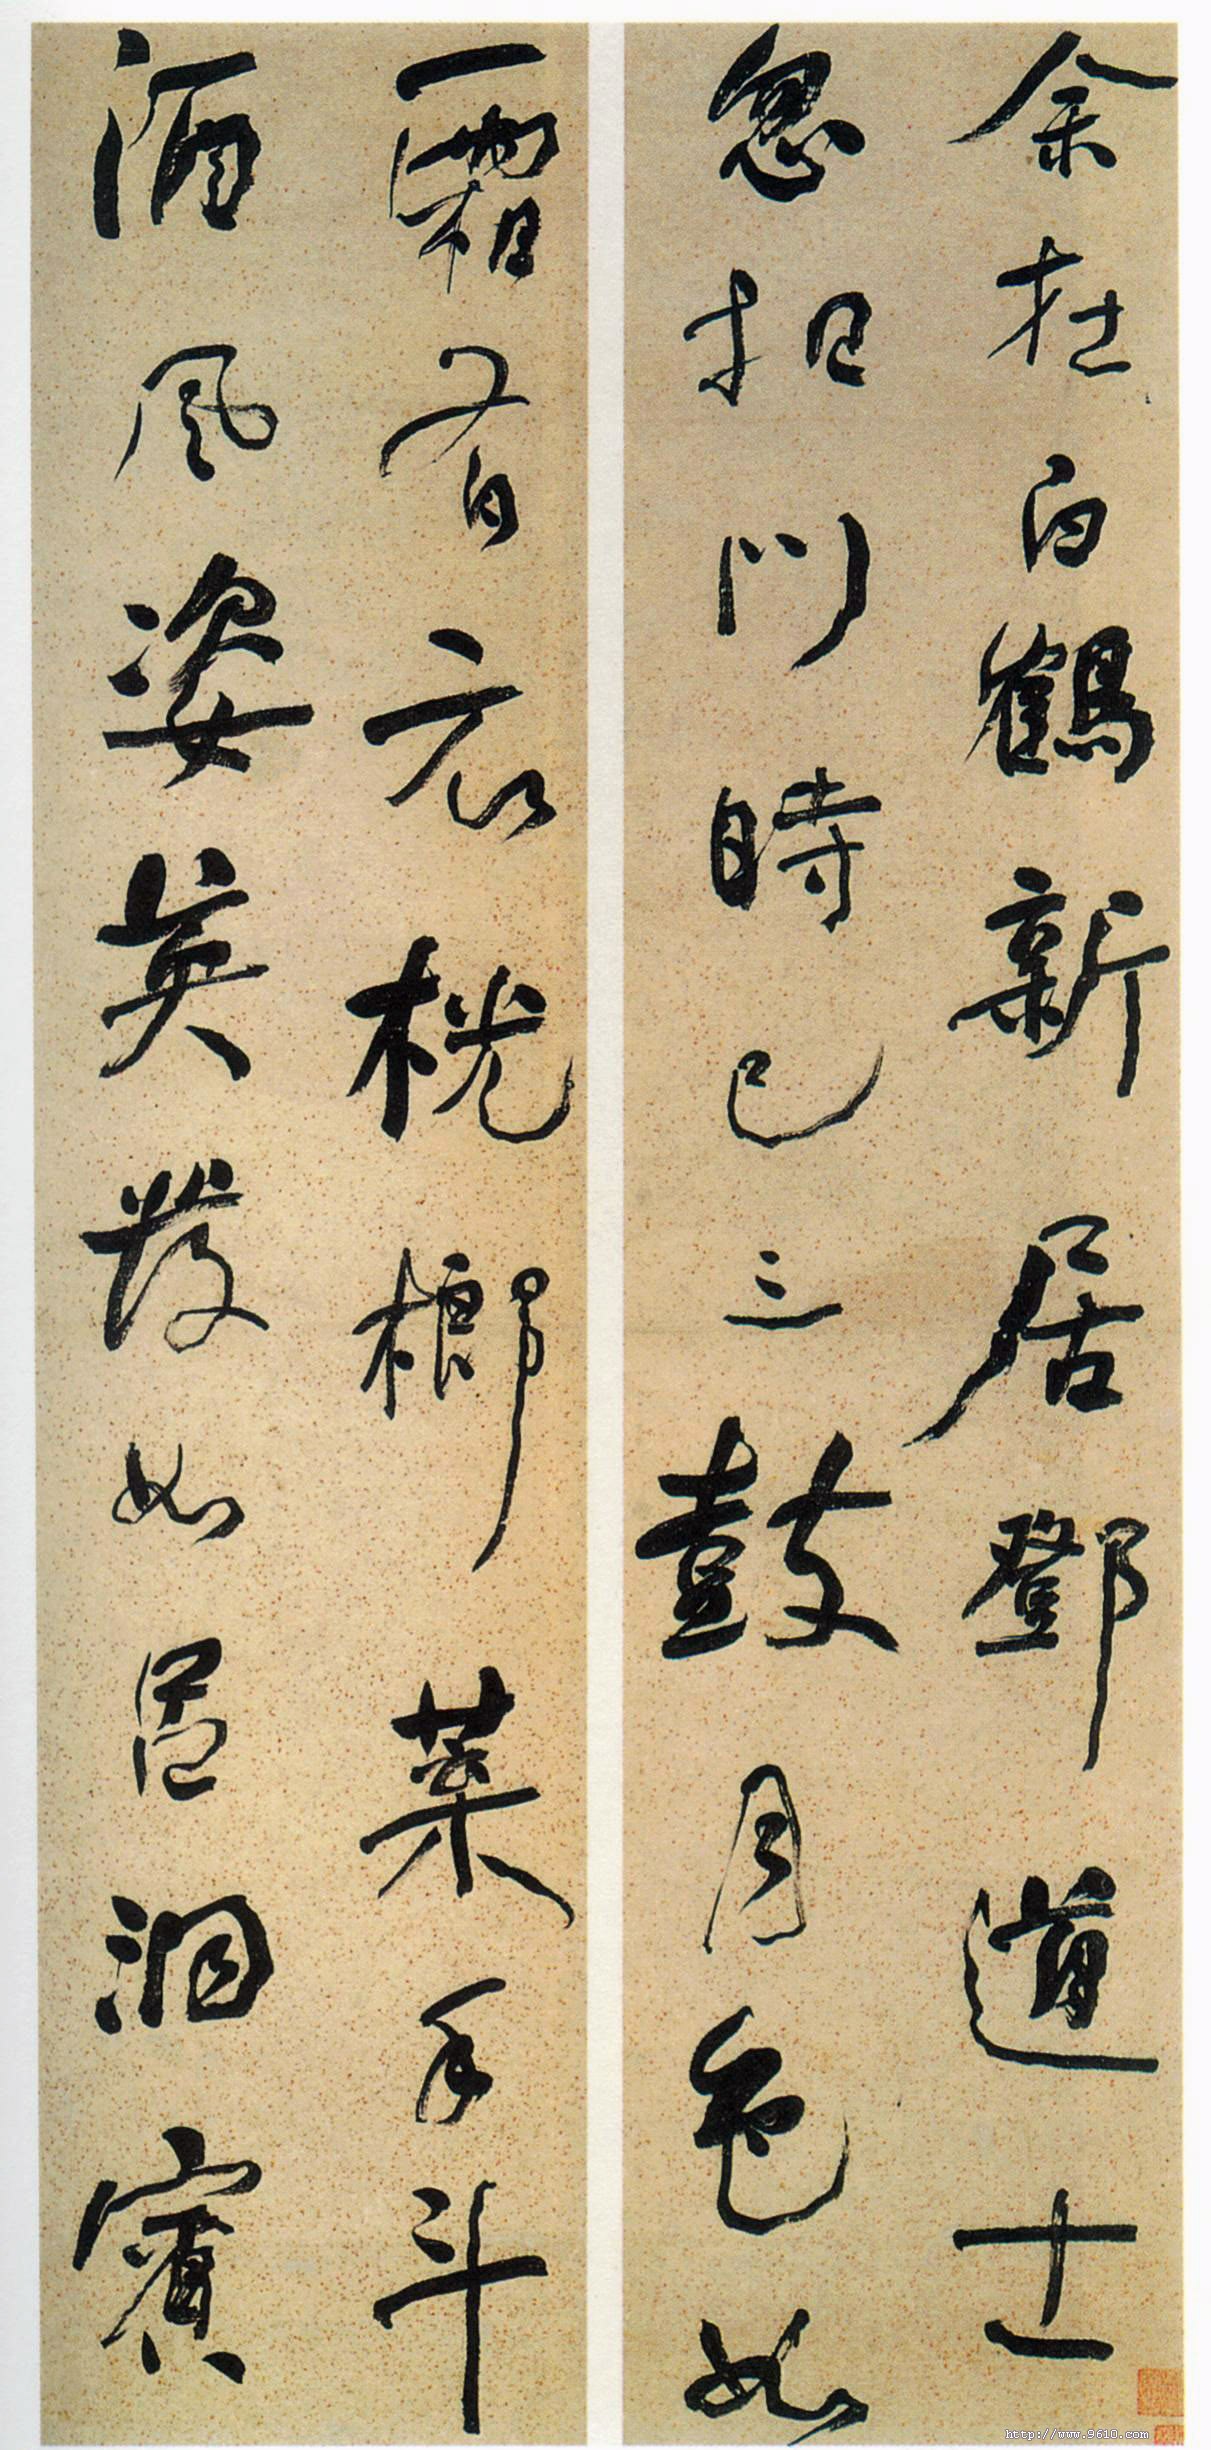 余在白鶴新居鄧道士
忽扣門時已三鼓月色如
霜有衣桄榔葉手斗
酒風姿英發如呂洞賓
http://www.9610.com